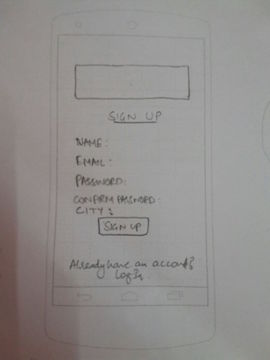 SIGN UP
NAME:
EMAIL:
PASSWORD:
CONFIRM PASSWORD:
CITY:
SIGN UP
Already have an account?
Log In.